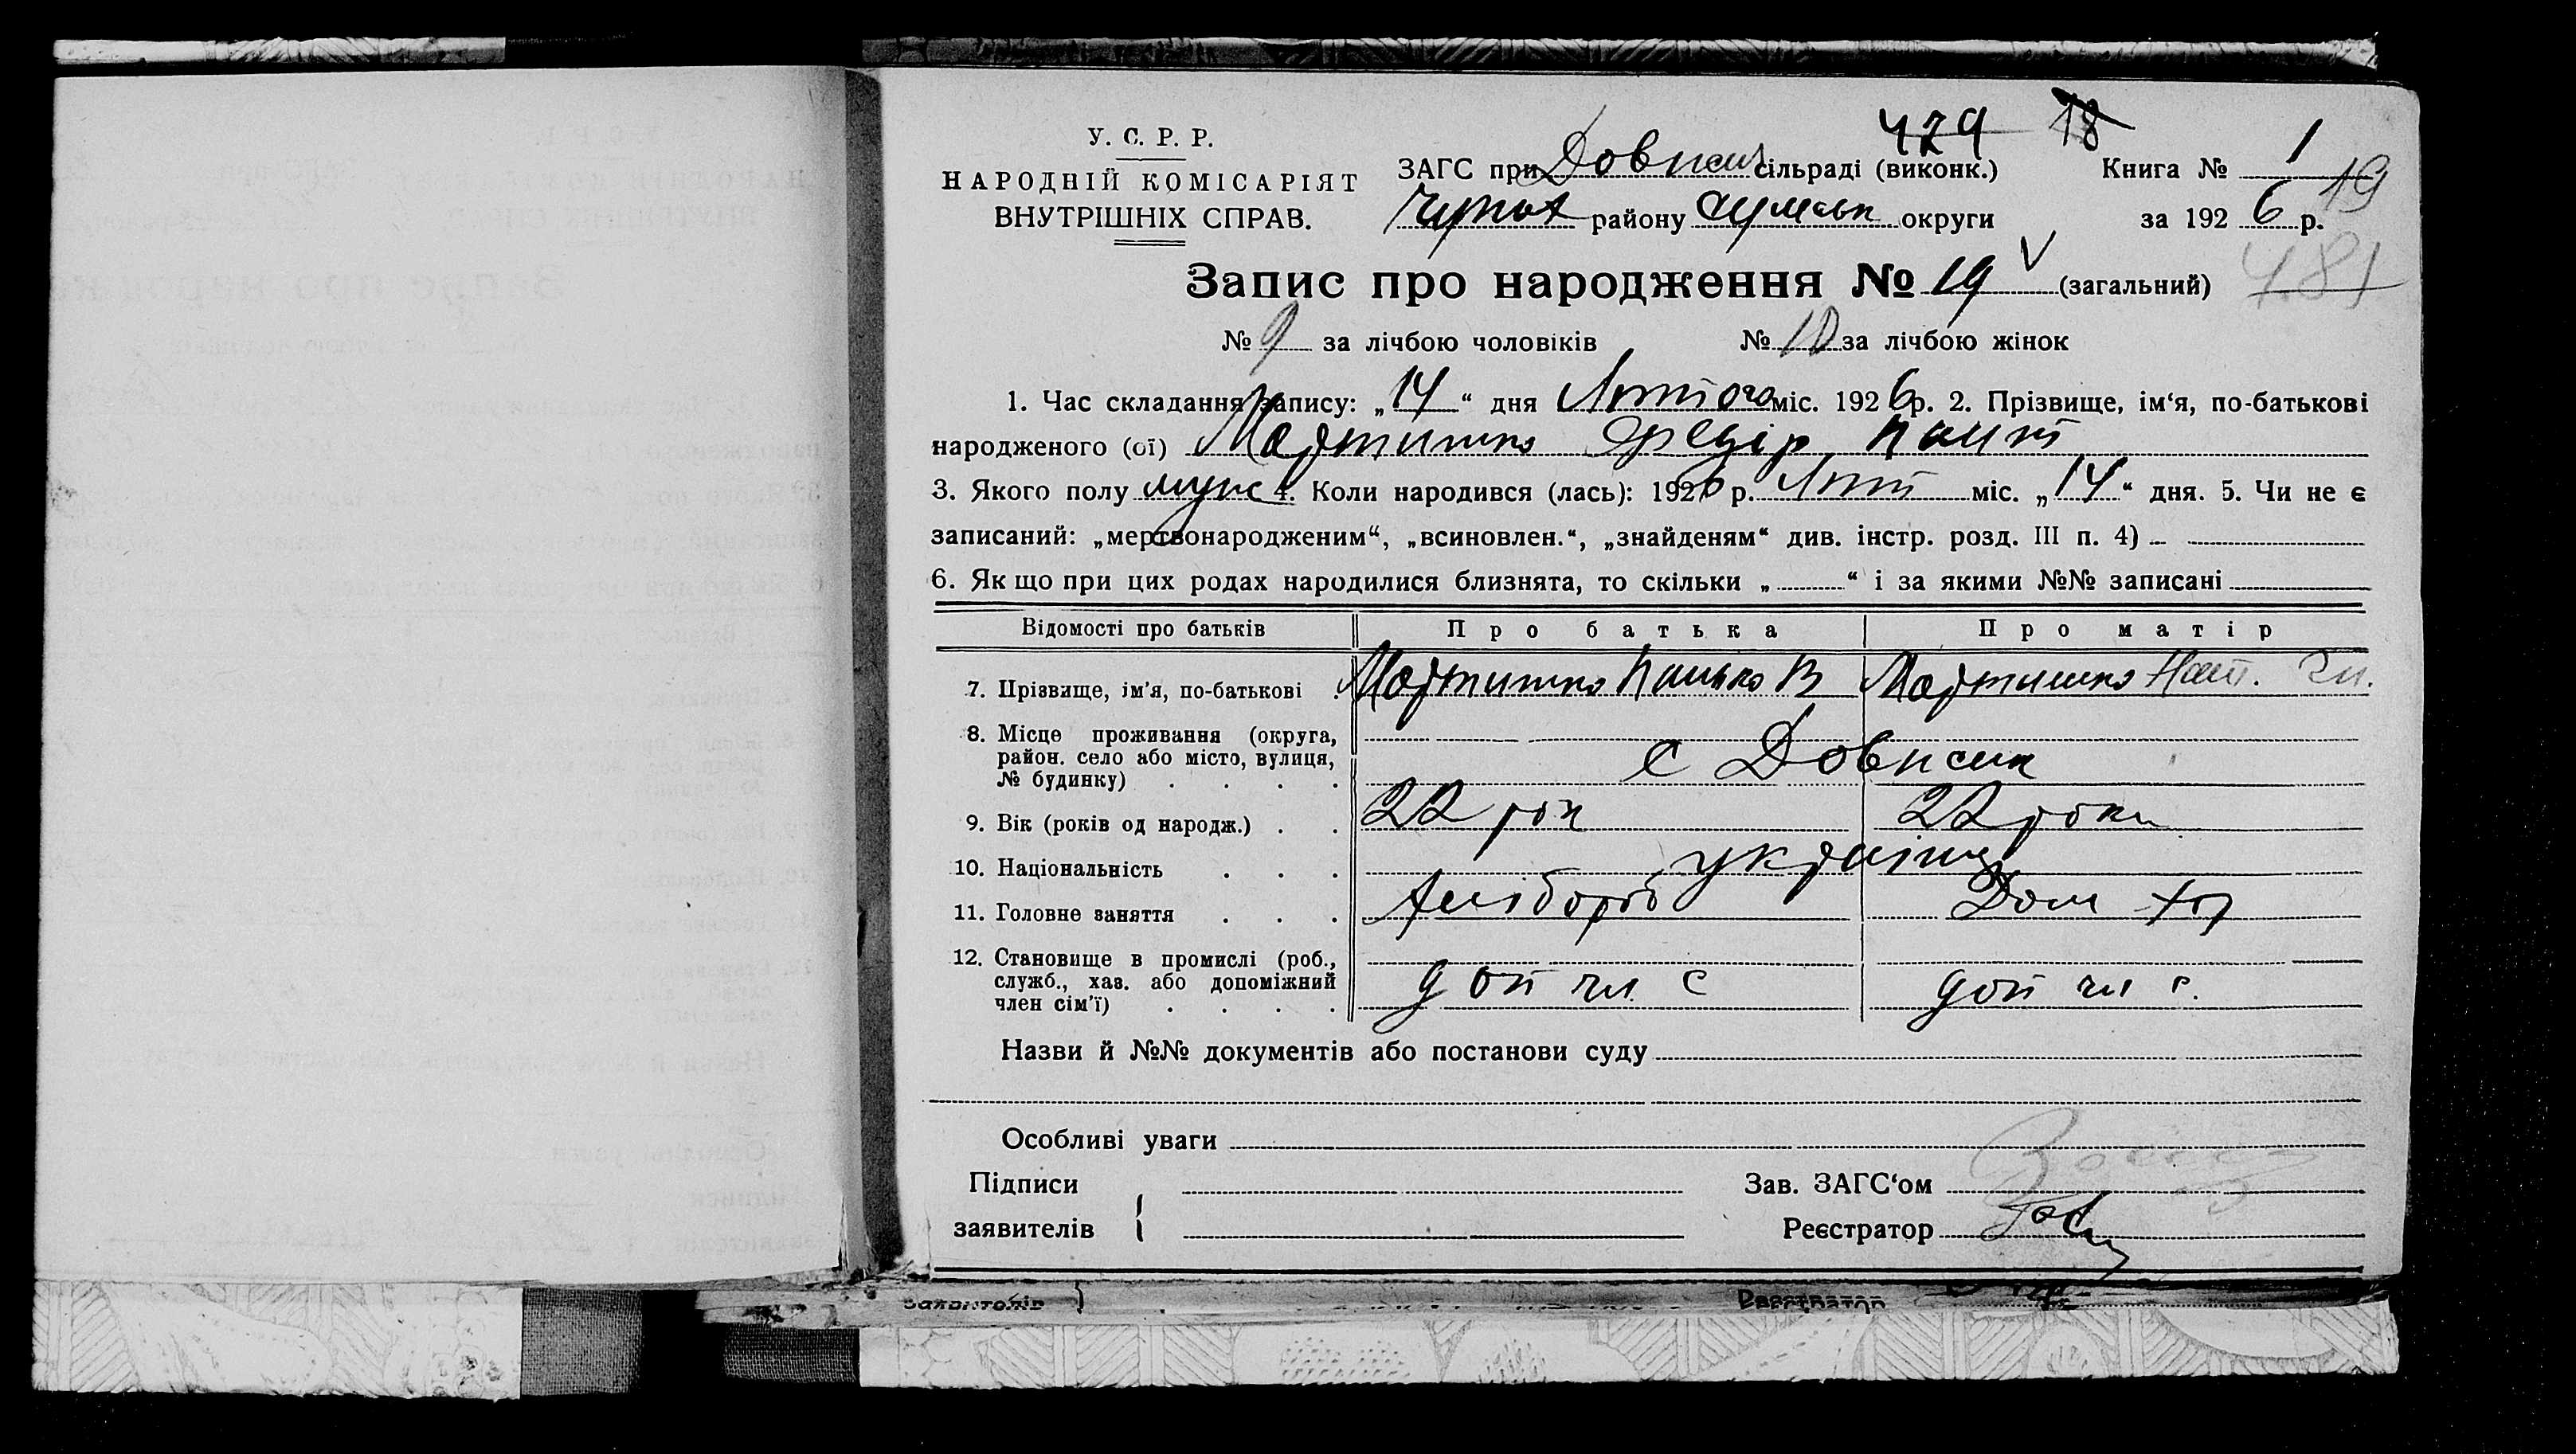 479 18
У. С. Р. Р.
ЗАГС при сільраді (виконк.) Книга № 1
НАРОДНІЙ КОМІСАРІЯТ
19
ВНУТРІШНІХ СПРАВ.
району округи за 192 6 р.
Запис про народження № 19 (загальний) 481
№ 9 за лічбою чоловіків № 10 за лічбою жінок
1. Час складання запису: „14“ дня Лютого міс. 1926 р. 2. Прізвище, ім‘я, по-батькові
народженого (ої) Мартишко Федір
3. Якого полу муж 4. Коли народився (лась): 1926 р. Лют міс. „14“ дня. 5. Чи не є
записаний: „мертвонародженим“, „всиновлен.“, „знайденям“ див. інстр. розд. III п. 4)
6. Як що при цих родах народилися близнята, то скільки „ “ і за якими №№ записані
Відомості про батьків Про батька Про матір
7. Прізвище, ім’я, по-батькові Мартишко Панько В Мартишко Нат.
8. Місце проживання (округа,
район. село або місто, вулиця,
№ будинку) с
9. Вік (років од народж.) 22 рок 22 роки
10. Національність україн
11. Головне заняття Хлібороб Дом хоз
12. Становище в промислі (роб.,
служб., хаз. або допоміжний
член сім’ї) доп чл с доп чл с.
Назви й №№ документів або постанови суду
Особливі уваги
Підписи Зав. ЗАГС‘ом
заявителів Реєстратор
заявителів Реєстратор